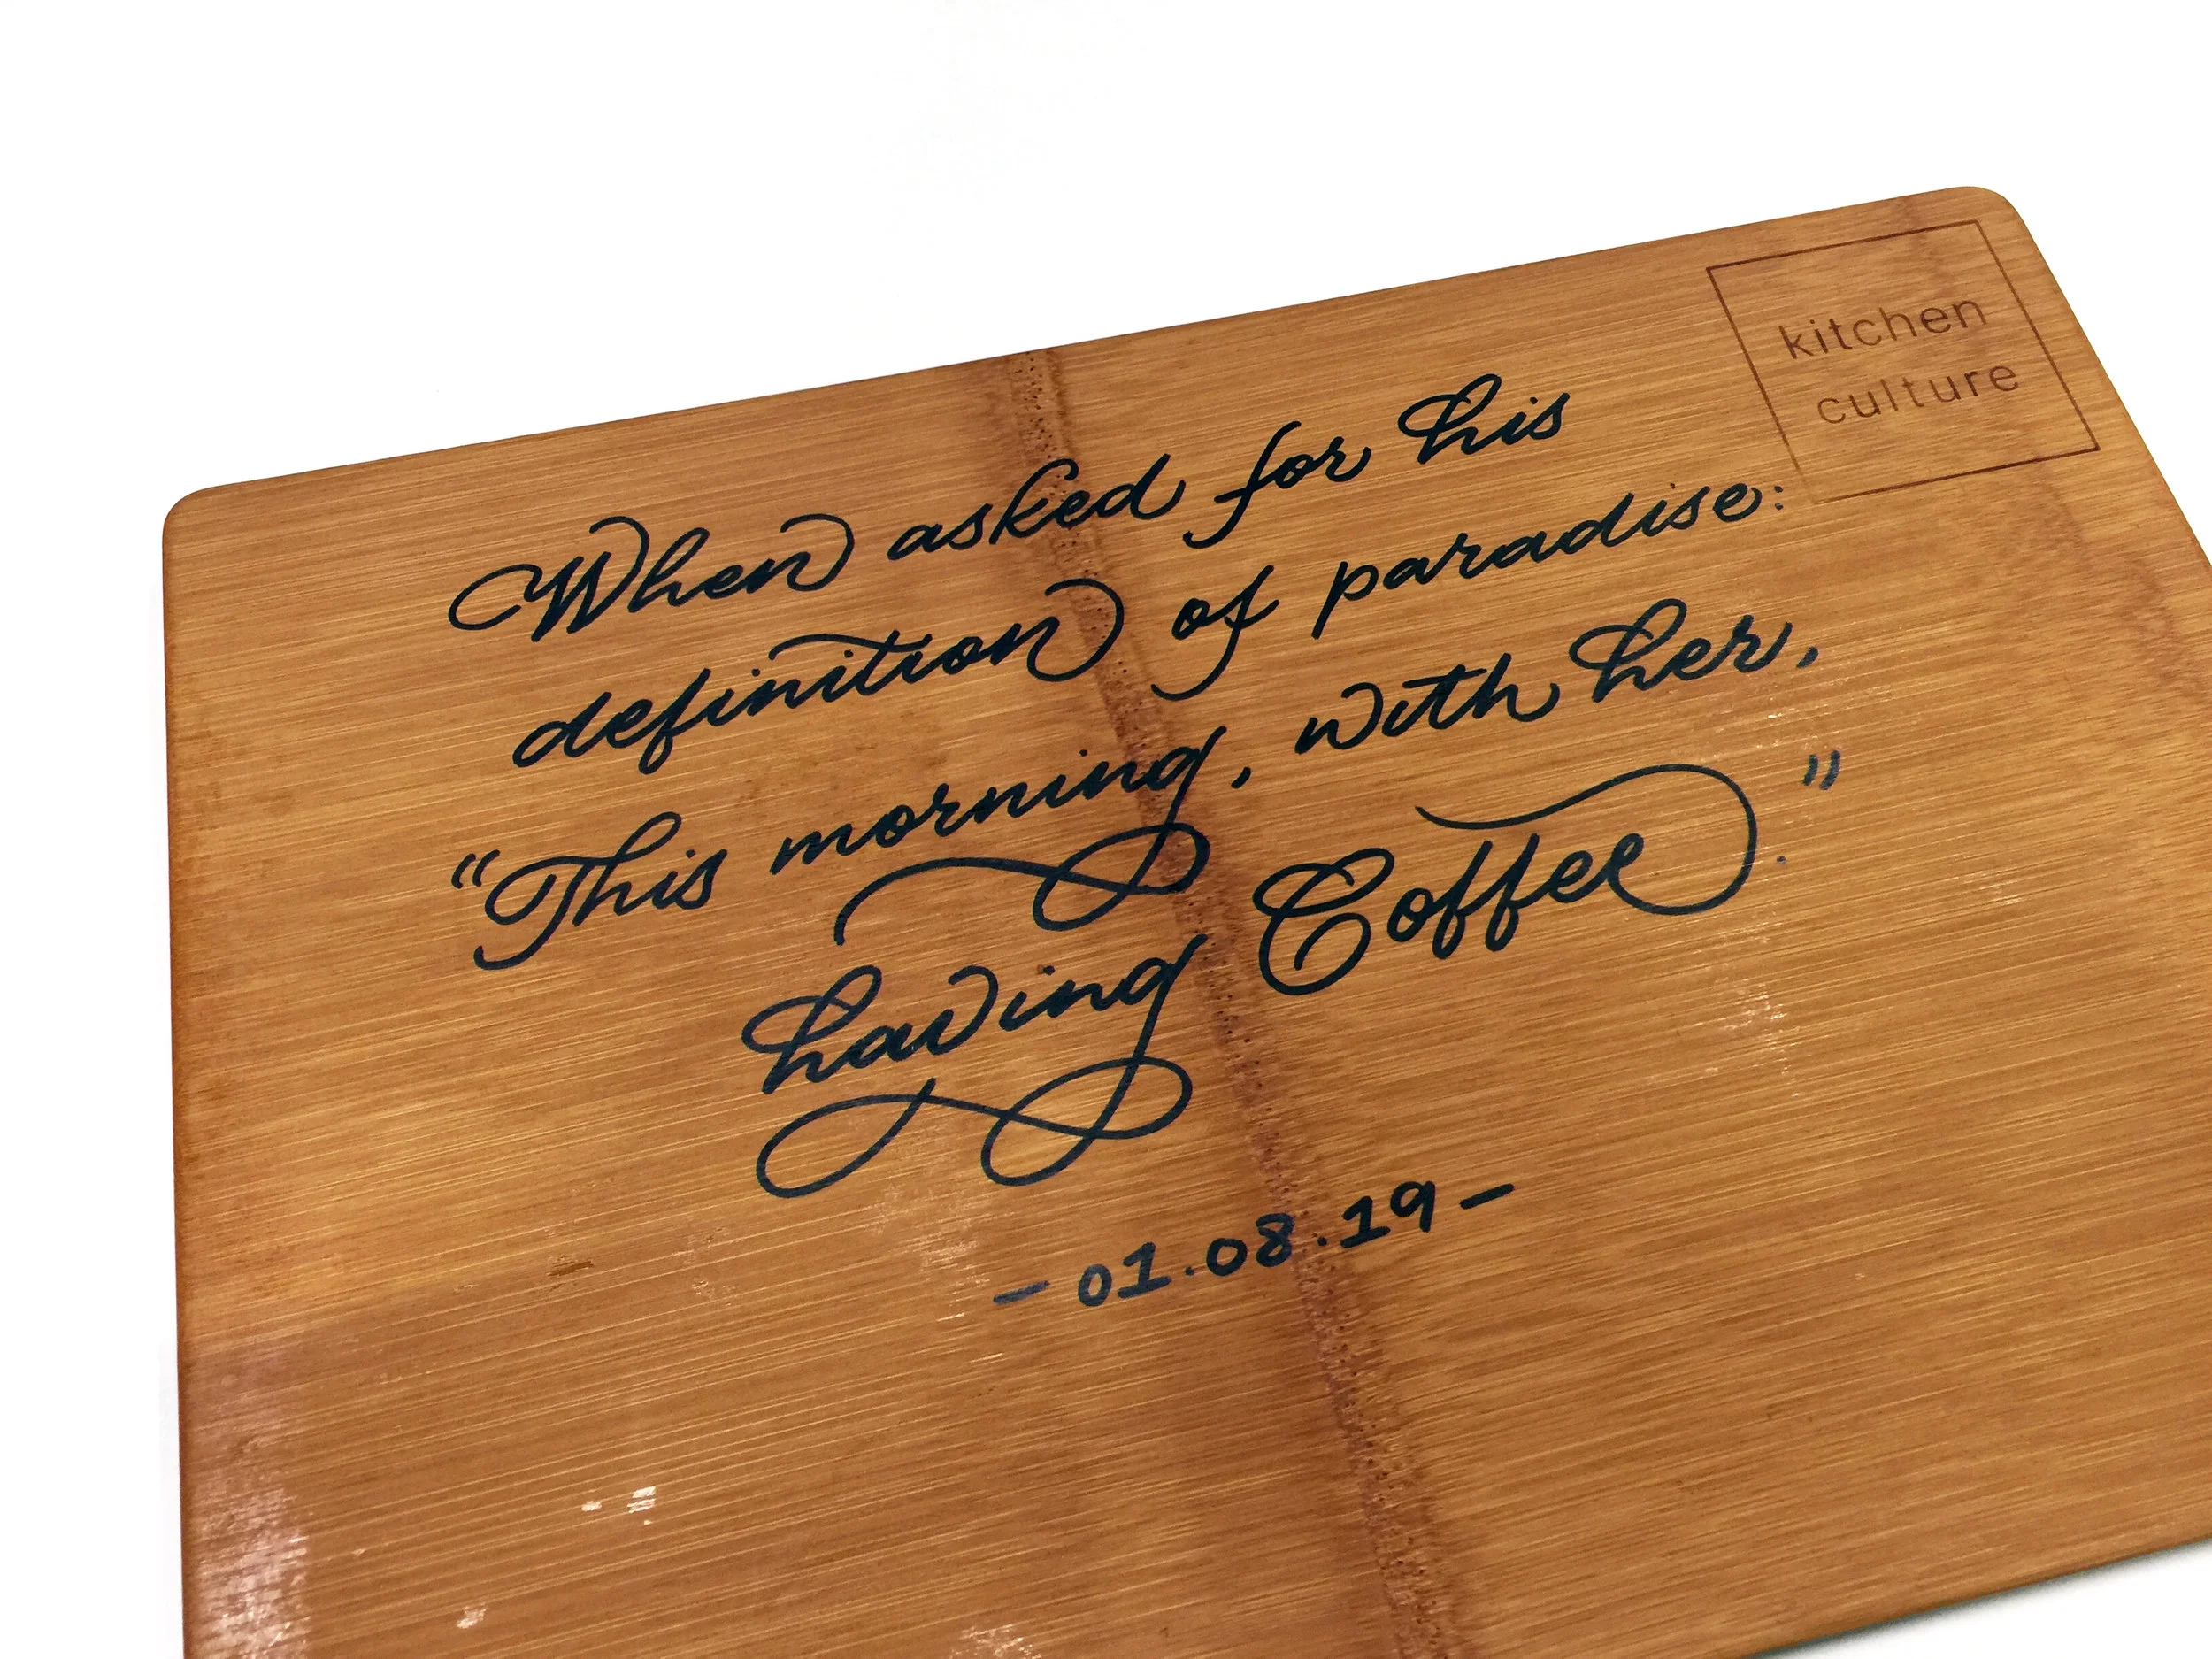 kitchen
culture
When asked for his
definition of paradise:
"This morning, with her,
having Coffee."
- 01.08.19 -